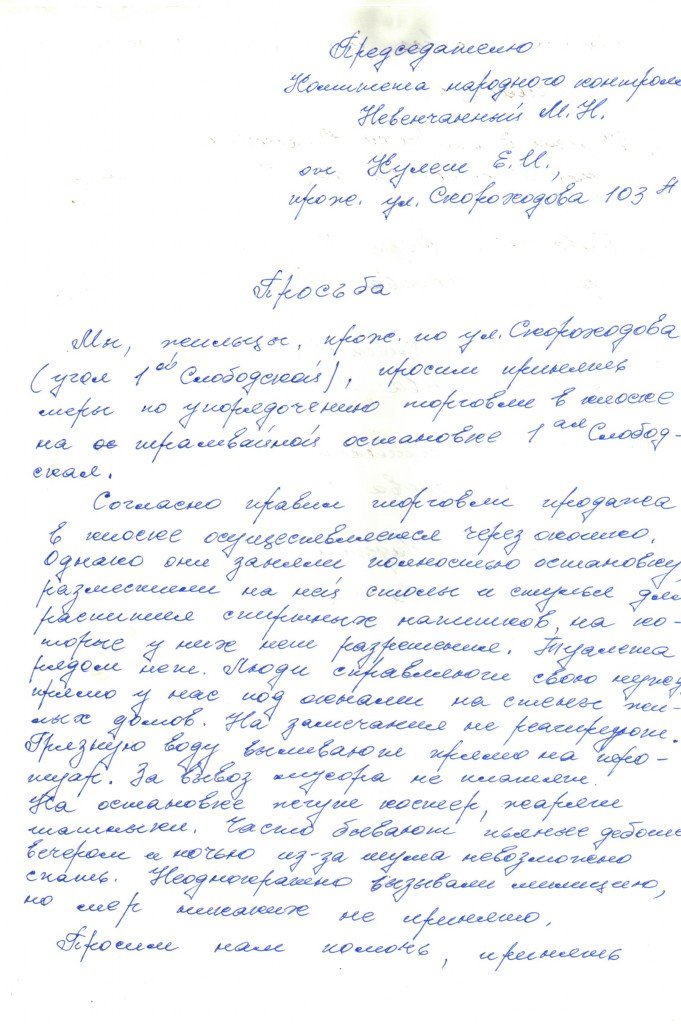 Председателю
Комитета народного контроля
Невенчанный М.Н.
от Кулеш Е.И.,
прож. ул. Скороходова 103 А
Просьба
Мы, жильцы, прож. по ул. Скороходова
(угол 1ой Слободской), просим принять
меры по упорядочению торговли в киоске
на ос трамвайной остановке 1ая Слобод-
ская.
Согласно правил торговли продажа
в киоске осуществляется через окошко.
Однако они заняли полностью остановку
разместили на ней столы и стулья для
распития спиртных напитков, на ко-
торые у них нет разрешения. Туалета
рядом нет. Люди справляют свою нужду
прямо у нас под окнами на стены жи-
лых домов. На замечания не реагируют.
Грязную воду выливают прямо на тро-
туар. За вывоз мусора не платят.
На остановке жгут костер, жарят
шашлыки. Часто бывают пьяные дебоши
вечером и ночью из-за шума невозможно
спать. Неоднократно вызывали милицию,
но мер никаких не принято.
Просим нам помочь, принять